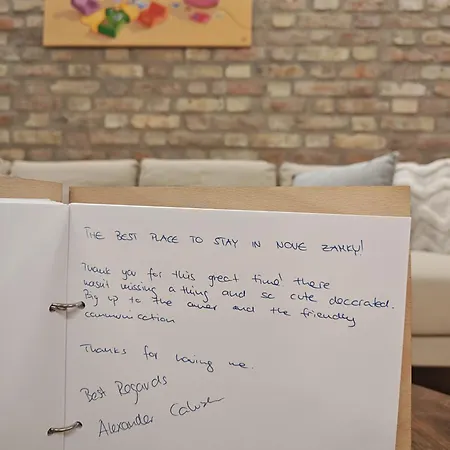 THE BEST PLACE TO STAY IN NOVE ZAMKY!
Thank you for this great time! there
wasn't missing a thing and so cute decorated.
Big up to the owner and the friendly
communication
Thanks for having me.
Best Regards
Alexander